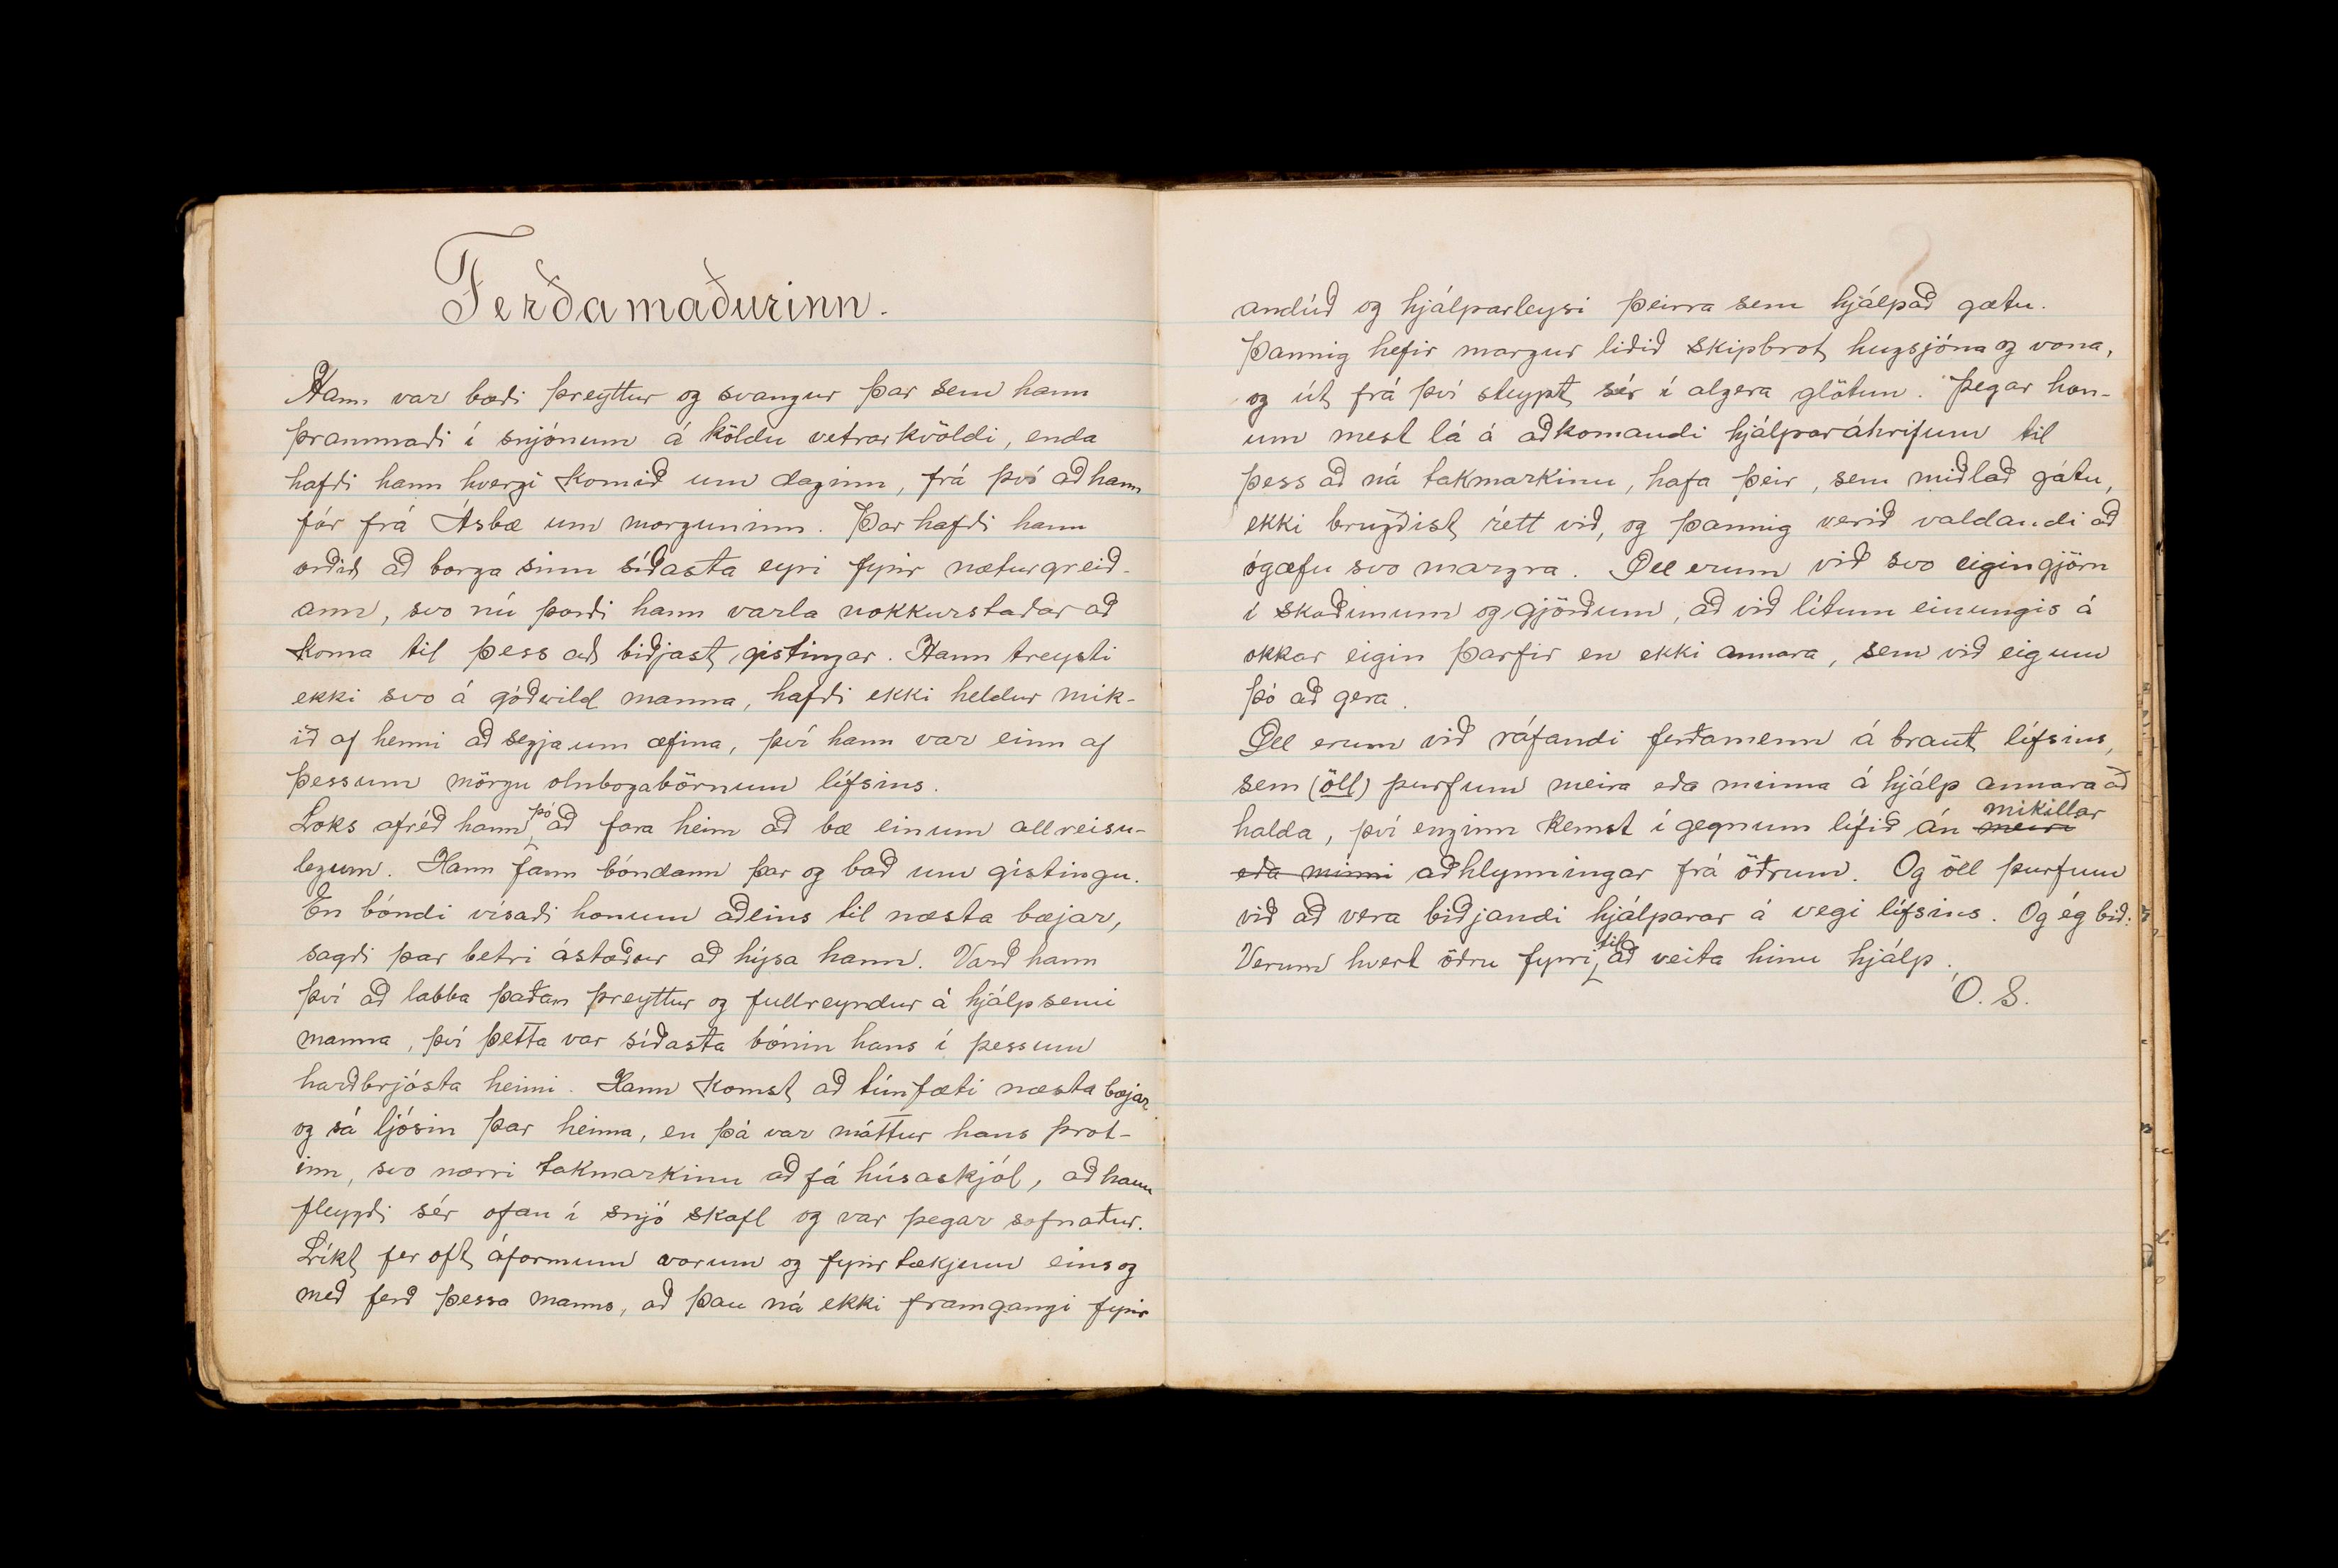 Ferðamaðurinn.
Hann var bæði þreyttur og svangur þar sem hann
þrammaði í snjónum á köldu vetrarkvöldi, enda
hafði hann hvergi komið um daginn, frá því að hann
fór frá Ásbæ um morguninn. Þar hafði hann
orðið að borga sinn síðasta eyri fyrir næturgreið-
ann, svo nú þorði hann varla nokkurstaðar að
koma til þess að biðjast gistingar. Hann treysti
ekki svo á góðvild manna, hafði ekki heldur mik-
ið af henni að segja um æfina, því hann var einn af
þessum mörgu olnbogabörnum lífsins.
Loks afréð hann þó að fara heim að bæ einum allreisu-
legum. Hann fann bóndann þar og bað um gistingu.
En bóndi vísaði honum aðeins til næsta bæjar,
sagði þar betri ástæður að hýsa hann. Varð hann
því að labba þaðan þreyttur og fullreyndur á hjálpsemi
manna, því þetta var síðasta bónin hans í þessum
harðbrjósta heimi. Hann komst að túnfæti næsta bæjar
og sá ljósin þar heima, en þá var máttur hans þrot-
inn, svo nærri takmarkinu að fá húsaskjól, að hann
fleygði sér ofan í snjó skafl og var þegar sofnaður.
Líkt fer oft áformum vorum og fyrirtækjum eins og
með ferð þessa manns, að þau ná ekki framgangi fyrir
andúð og hjálparleysi þeirra sem hjálpað gætu.
Þannig hefir margur liðið skipbrot hugsjóna og vona,
og út frá því steypt sér í algera glötun. Þegar hon-
um mest lá á aðkomandi hjálparáhrifum til
þess að ná takmarkinu, hafa þeir, sem miðlað gátu,
ekki brugðist rétt við, og þannig verið valdandi að
ógæfu svo margra. Öll erum við svo eigingjörn
í skoðunum og gjörðum, að við lítum einungis á
okkar eigin þarfir en ekki annara, sem við eigum
þó að gera.
Öll erum við ráfandi ferðamenn á braut lífsins,
sem (öll) þurfum meira eða minna á hjálp annara að
halda, því enginn kemst í gegnum lífið án meiri mikillar
eða minni aðhlynningar frá öðrum. Og öll þurfum
við að vera biðjandi hjálparar á vegi lífsins. Og ég bið:
Verum hvert öðru fyrri til að veita hinu hjálp.
O. S.